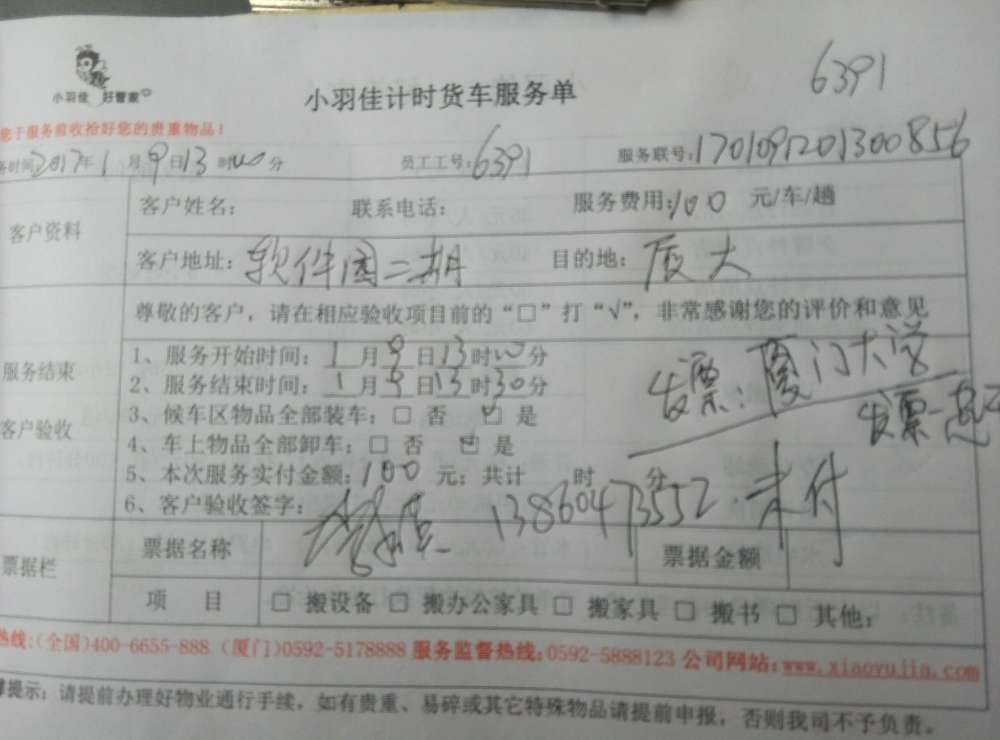 6391
小羽佳 好管家
小羽佳计时货车服务单
您于服务前收拾好您的贵重物品！
务时间2017年1月9日13时00分 员工工号：6391 服务联号：170109201300856
客户资料
客户姓名： 联系电话： 服务费用：100 元/车/趟
客户地址：软件园二期 目的地：厦大
尊敬的客户，请在相应验收项目前的“□”打“√”，非常感谢您的评价和意见
服务结束
客户验收
1、服务开始时间：1月9日13时00分
2、服务结束时间：1月9日13时30分
3、候车区物品全部装车：□ 否 ☑ 是
4、车上物品全部卸车：□ 否 ☑ 是
5、本次服务实付金额：100 元；共计 时 分
6、客户验收签字： 13860473552．未付
发票：厦门大学
发票
票据栏
票据名称 票据金额
项 目 □ 搬设备 □ 搬办公家具 □ 搬家具 □ 搬书 □ 其他：
热线：(全国)400-6655-888 (厦门)0592-5178888 服务监督热线：0592-5888123 公司网站：www.xiaoyujia.com
提示：请提前办理好物业通行手续，如有贵重、易碎或其它特殊物品请提前申报，否则我司不予负责。